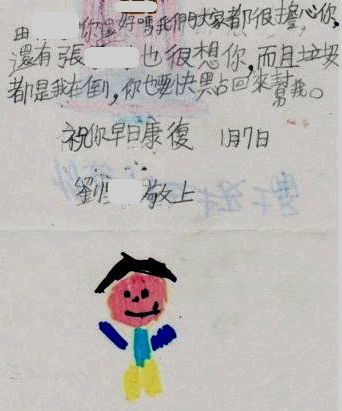 由 你還好嗎我們大家都很擔心你,
還有張 也很想你,而且垃圾
都是我在倒,你也要快點回來幫我。
祝你早日康復 1月7日
劉 敬上